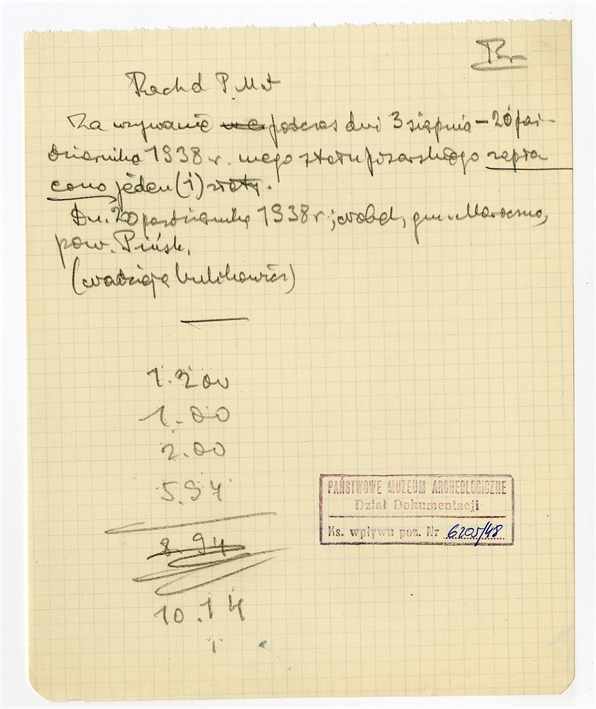 Rach d P.M.A
Za używanie podczas dni 3 sierpnia – 20 paź-
dziernika 1938 r. mego stołu pisarskiego zapła
cono jeden (1) złoty.
Dn. 20 października 1938 r., gm. Moroczno,
pow. Pińsk.
1.200
1.00
2.00
5.94
8.94
10.14
PAŃSTWOWE MUZEUM ARCHEOLOGICZNE
Dział Dokumentacji
Ks. wpływu poz. Nr 6205/48